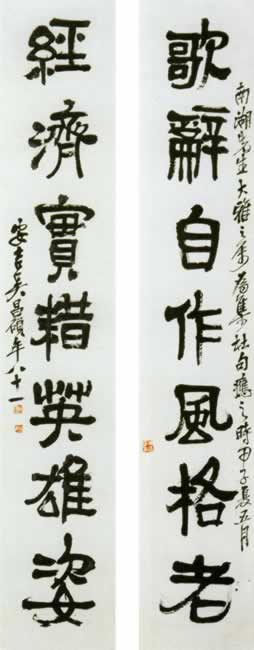 南湖先生大雅之屬為集杜句應之時甲子夏五月
歌辭自作風格老
經濟實耤英雄姿
安吉吳昌碩年八十一